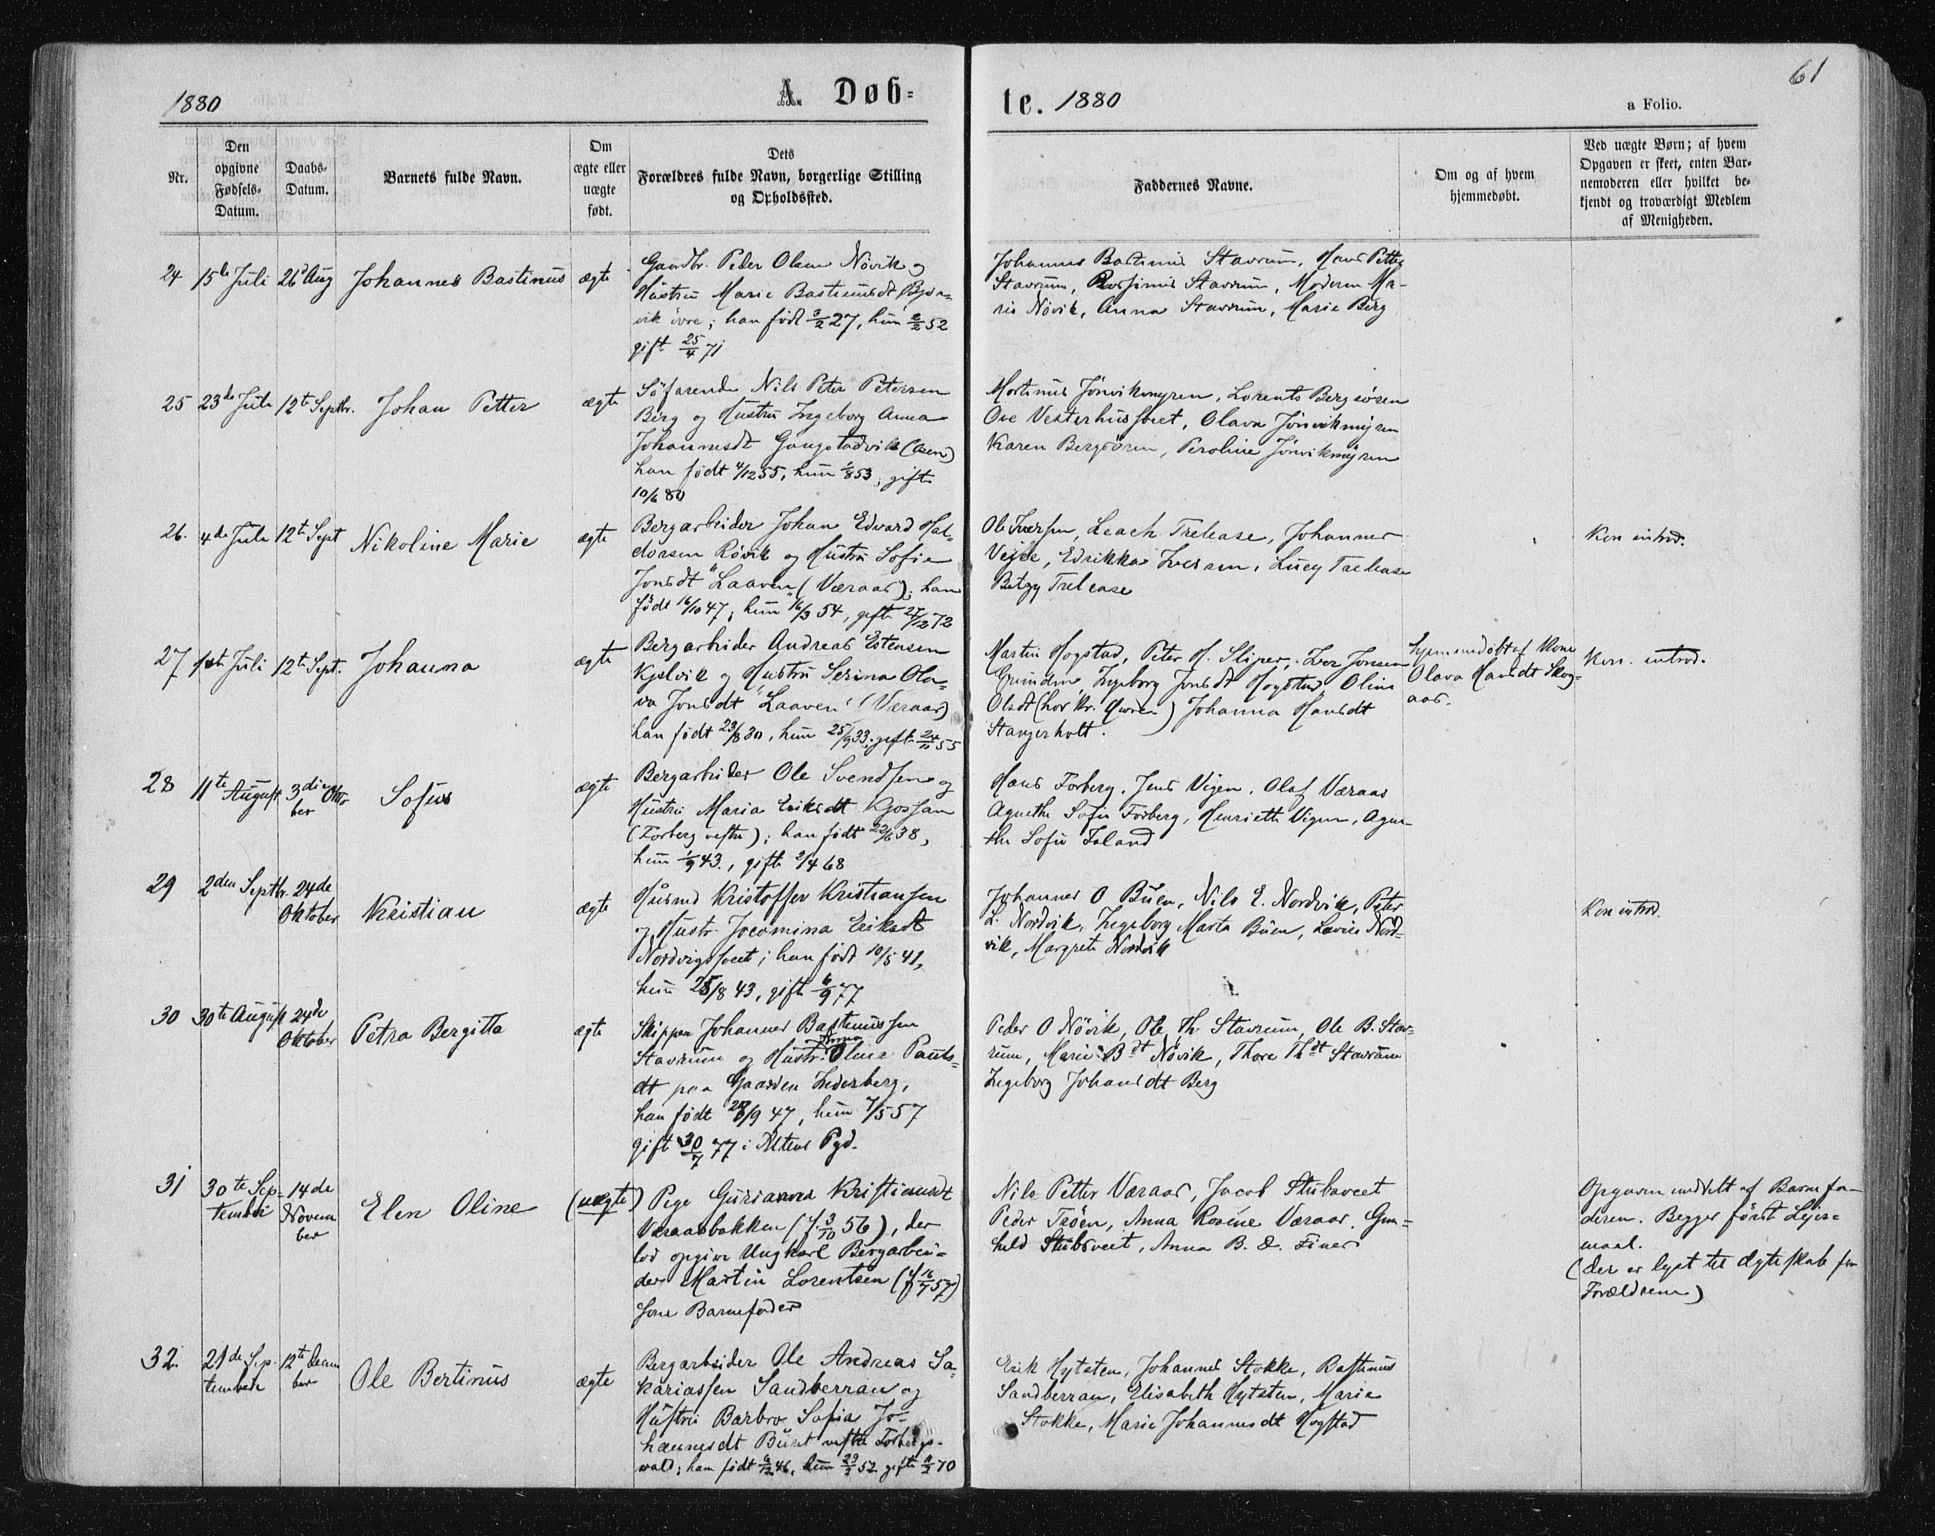 1880
A. Døb-
te. 1880
61
a Folio.
Nr.
Den
opgivne
Fødsels-
Datum.
Daabs-
Datum.
Barnets fulde Navn.
Om
ægte eller
uægte
født.
Dets
Forældres fulde Navn, borgerlige Stilling
og Opholdssted.
Faddernes Navne.
Om og af hvem
hjemmedøbt.
Ved uægte Børn; af hvem
Opgaven er skeet, enten Bar-
nemoderen eller hvilket be-
kjendt og troværdigt Medlem
af Menigheden.
24 15de Juli 26d Aug Johannes Bastinus ægte
Gaardbr. Peder Olsen Növik og
Hustru Marie Bastiansdt
vik övre; han født 3/2 27, hun 2/2 52
gift 25/4 71
Johannes Bastinus Stavrum, Hans Petter
Stavrum, Stavrum, Moderen Ma-
rie Növik, Anna Stavrum, Marie Berg
25 23de Juli 12te Septbr. Johan Petter ægte
Söfarende Nils Peter Petersen
Berg og Hustru Ingeborg Anna
Johannesdt Gangstadvik (
han født 4/12 55, hun 1/8 53, gift
10/6 80
Mortinus Jönvikmyren, Lorents Bergsören
Ove Vesterhusveet, Olava Jönvikmyren
Karen Bergsören, Peroline Jönvikmyren
26. 4de Juli 12te Sept Nikoline Marie ægte
Bergarbeider Johan Edvard Hal-
dorsen Rövik og Hustru Sofie
Jonsdt "Laaven" (Væraas); han
født 16/10 47, hun 16/3 54, gift 27/12 72
Ole Iversen, Leach Trelease, Johannes
Veiee, Edrikka Iversen, Lucy Trelease
Betzy Trelease
Kon introd.
27 1ste Juli 12te Sept. Johanna ægte
Bergarbeider Andreas Estensen
Kjelvik og Hustru Serina Ola-
va Jonsdt "Laaven" (Væraas)
han født 23/8 30, hun 25/9 33, gift 24/10 55
Martin Hogstad, Peter H. Sliper, Iver Jonsen
Grinden Ingeborg Jonsdt Hogstad, Oline
Olsdt Johanna Hansdt
Stangerholt.
Hjemmedøbt af Kone
Olava Hansdt Skog-
aas.
Kon. introd.
28 11te August 3die Okto
ber Sofus ægte
Bergarbeider Ole Svendsen og
Hustru Maria Eriksdt Kjossan
(Forberg vestre); han født 22/6 38,
hun 1/9 43, gift 2/4 68
Hans Forberg, Jens Vigen, Olaf Væraas
Agnethe Sofie Forberg, Henriette Vigen, Agne-
the Sofie Foland
29 2den Septbr. 24de
Oktober Kristian ægte
Husmd Kristoffer Kristiansen
og Hustr. Jocomina Eriksdt
Nordvigsveet; han født 10/5 41,
hun 25/8 43, gift 6/9 77
Johannes O Buen, Nils E. Nordvik, Peter
L. Nordvik, Ingeborg Marta Buen, Lovise Nord-
vik, Margrete Nordvik
Kon introd.
30 30te August 24de
Oktober Petra Bergitta ægte
Skipper Johannes Bastinussen
Stavrum og Hustr. Anna Oline Pauls-
dt paa Gaarden Inderberg,
han født 28/9 47, hun 7/5 57
gift 30/7 77 i Alstens Pgd.
Peder O Növik, Ole Th. Stavrum, Ole B. Stav-
rum, Marie Bdt Növik, Thora Thdt Stavrum
Ingeborg Johansdt Berg
31 30te Sep-
tember 14de
Novem
ber Elen Oline (uægte)
Pige Gurianna Kristiansdt
Væraasbakken (f. 3/10 56), der
lod opgive Ungkarl Bergarbei-
der Martin Lorentsen (f 16/7 57)
som Barnefader
Nils Petter Væraas, Jacob Stubsveet
Peder Tröen, Anna Rosine Væraas, Gun-
hild Stubsveet, Anna B. d. Finer
Opgaven meddelt af Barnefa-
deren. Begges første Leier-
maal.
(der er lyst til Ægteskab for
Forældrene)
32. 21de Sep-
tember 12te Decem
ber Ole Bertinus ægte
Bergarbeider Ole Andreas Sa-
kariassen Sandberran og
Hustru Barbro Sofia Jo-
hannesdt Buret vestre Forbergs-
vald; han født 6/12 46, hun 23/2 52 gift 2/2 70
Erik Hytsten, Johannes Stokke, Bastinus
Sandberran, Elisabeth Hytsten, Marie
Stokke, Marie Johannesdt Hogstad